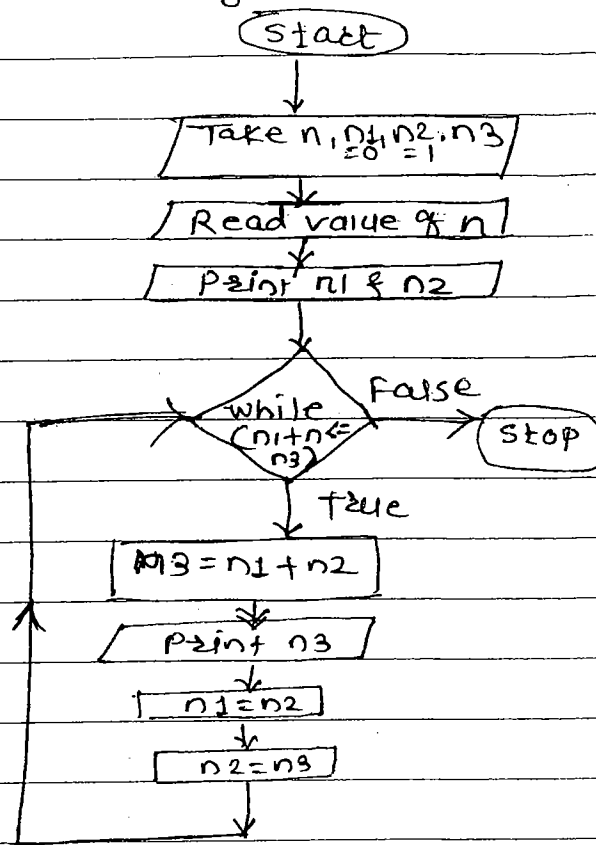 Start
Take n, n1, n2, n3
=0 =1
Read value of n
Print n1 & n2
while
(n1+n<=
n3)
False
Stop
True
n3 = n1 + n2
Print n3
n1 = n2
n2 = n3